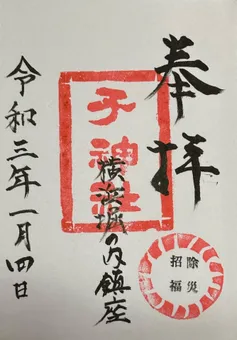 奉拝
子神社
横浜城の内鎮座
除災
招福
令和三年一月四日